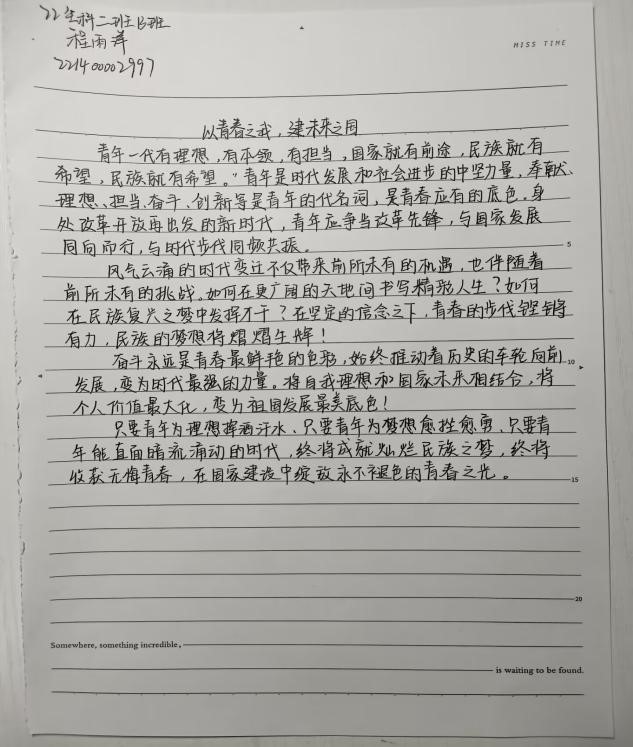 22生科二班B班
程雨萍
221400002997
MISS TIME
以青春之我，建未来之国
青年一代有理想，有本领，有担当，国家就有前途，民族就有
希望，民族就有希望。"青年是时代发展和社会进步的中坚力量，奉献、
理想、担当、奋斗、创新等是青年的代名词，是青春应有的底色。身
处改革开放再出发的新时代，青年应争当改革先锋，与国家发展
同向而行，与时代步伐同频共振。
5
风气云涌的时代变迁不仅带来前所未有的机遇，也伴随着
前所未有的挑战。如何在更广阔的天地间书写精彩人生？如何
在民族复兴之梦中发挥才干？在坚定的信念之下，青春的步伐铿锵
有力，民族的梦想将熠熠生辉！
奋斗永远是青春最鲜艳的色彩，始终推动着历史的车轮向前
10
发展，变为时代最强的力量。将自我理想和国家未来相结合，将
个人价值最大化，变为祖国发展最美底色！
只要青年为理想挥洒汗水、只要青年为梦想愈挫愈勇、只要青
年能直面暗流涌动的时代，终将成就灿烂民族之梦，终将
收获无悔青春，在国家建设中绽放永不褪色的青春之光。
15
20
Somewhere, something incredible,
is waiting to be found.